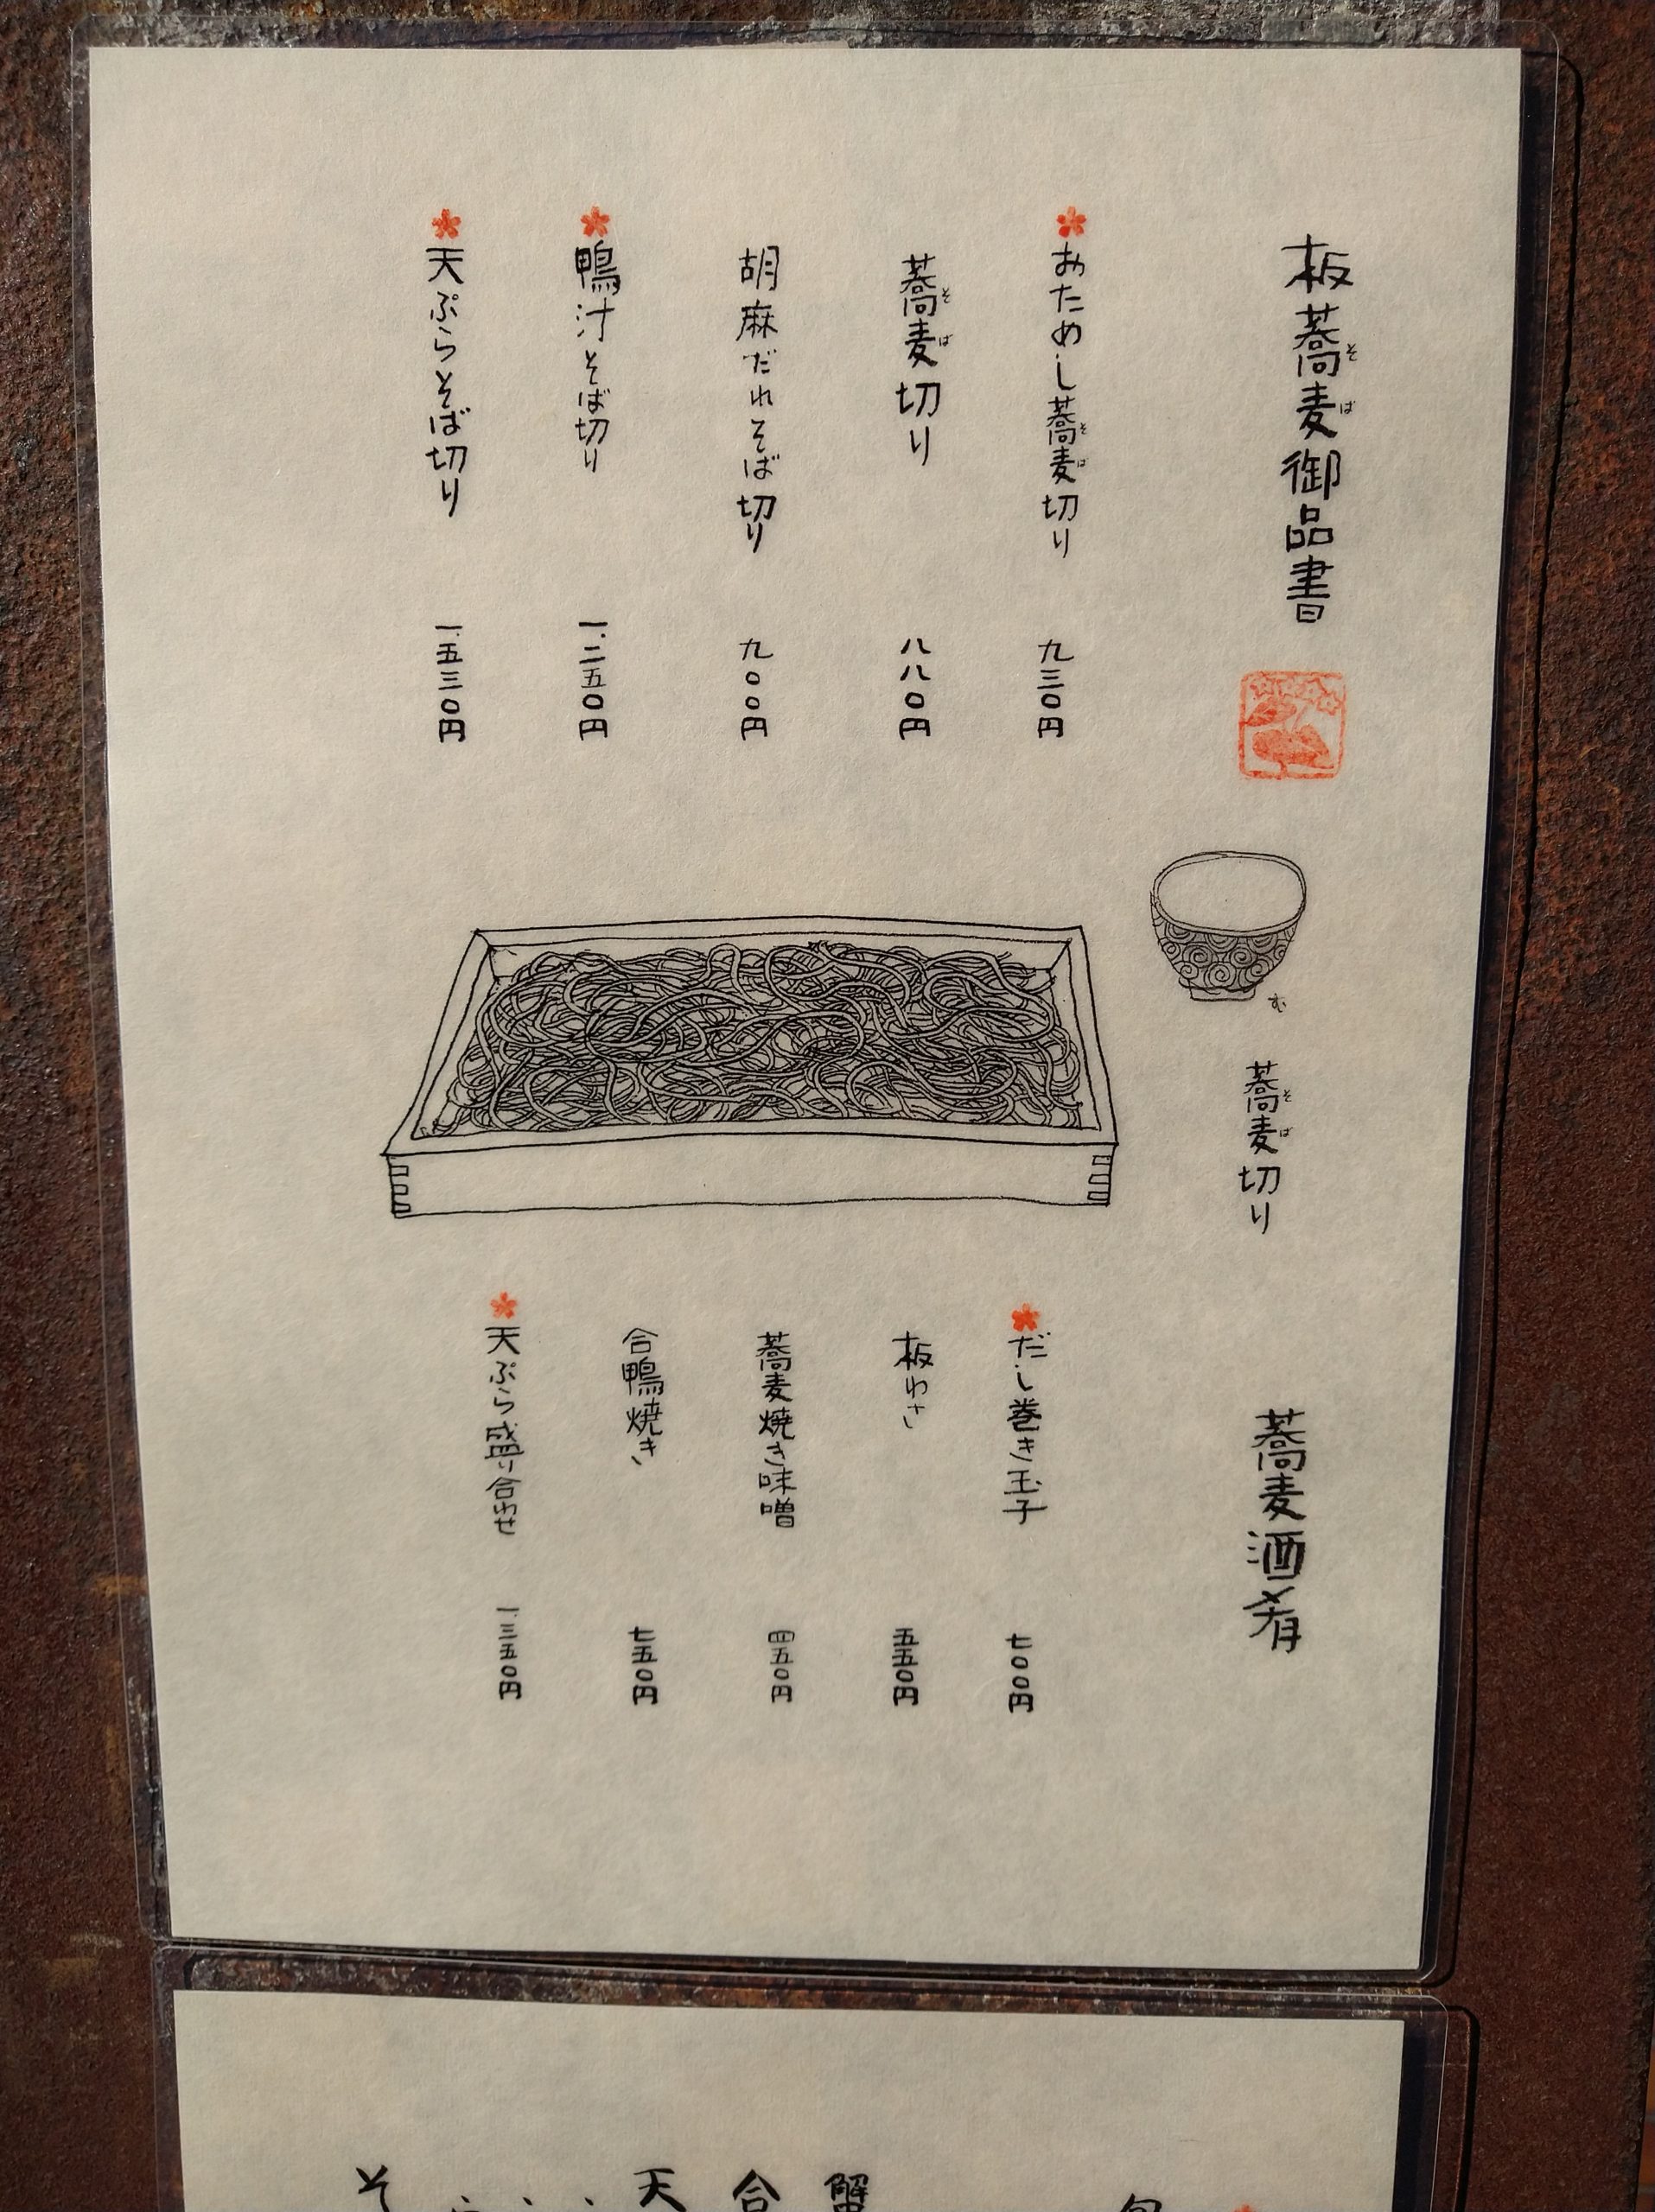 板蕎麦御品書
そば
おためし蕎麦切り 九三〇円
そば
蕎麦切り 八八〇円
そば
胡麻だれそば切り 九〇〇円
鴨汁そば切り 一.二五〇円
天ぷらそば切り 一.五三〇円
む
蕎麦切り
そば
蕎麦酒肴
だし巻き玉子 七〇〇円
板わさ 五五〇円
蕎麦焼き味噌 四五〇円
合鴨焼き 七五〇円
天ぷら盛り合わせ 一.三五〇円
蟹
合
天
そ